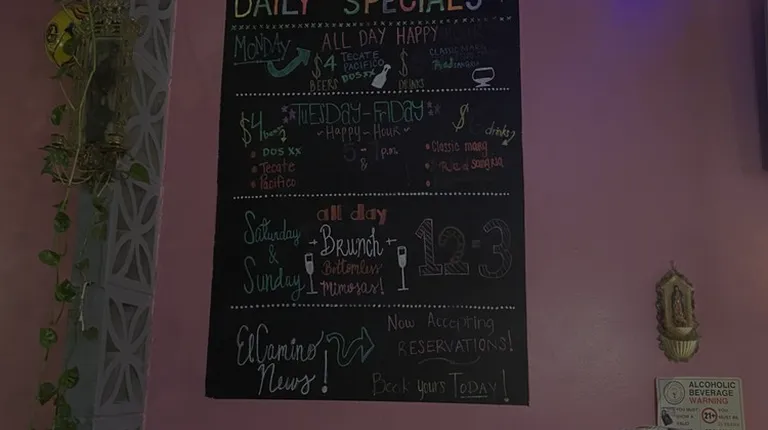 DAILY SPECIALS
MONDAY
ALL DAY HAPPY
$4
BEERS
TECATE
PACIFICO
DOS XX
$
DRINKS
CLASSIC MARG
TUESDAY-FRIDAY
~Happy-Hour~
&
$4
• DOS XX
• Tecate
• Pacifico
$
drinks
• Classic marg
• Red sangria
Saturday
&
Sunday
all day
Brunch
Bottomless
Mimosas!
12-3
El Camino
News!
Now Accepting
RESERVATIONS!
Book Yours TODAY!
ALCOHOLIC
BEVERAGE
WARNING
21+